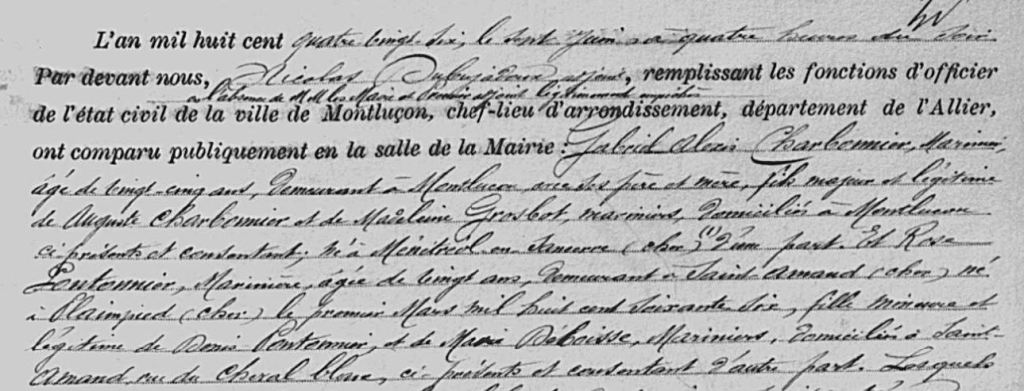 L'an mil huit cent quatre vingt six, le sept Juin à quatre heures du soir
Par devant nous, Nicolas adjoint, remplissant les fonctions d'officier
à l'absence de MM les Maire et Premier adjoint légitimement empêchés
de l'état civil de la ville de Montluçon, chef-lieu d'arrondissement, département de l'Allier,
ont comparu publiquement en la salle de la Mairie : Gabriel Alexis Charbonnier, Marinier,
âgé de vingt-cinq ans, demeurant à Montluçon avec ses père et mère, fils majeur et légitime
de Auguste Charbonnier et de Madeleine Grosbot, mariniers, domiciliés à Montluçon
ci présents et consentant; né à Ménétréol en Sancerre (cher) (1) d'une part. Et Rose
Pontonnier, Marinière, âgée de vingt ans, demeurant à Saint amand (cher) né
à Plaimpied (cher) le premier Mars mil huit cent soixante six, fille mineure et
légitime de Denis Pontonnier, et de Marie Deboisse, Mariniers, domiciliés à Saint-
Amand rue du Cheval blanc, ci présents et consentant d'autre part. Lesquels